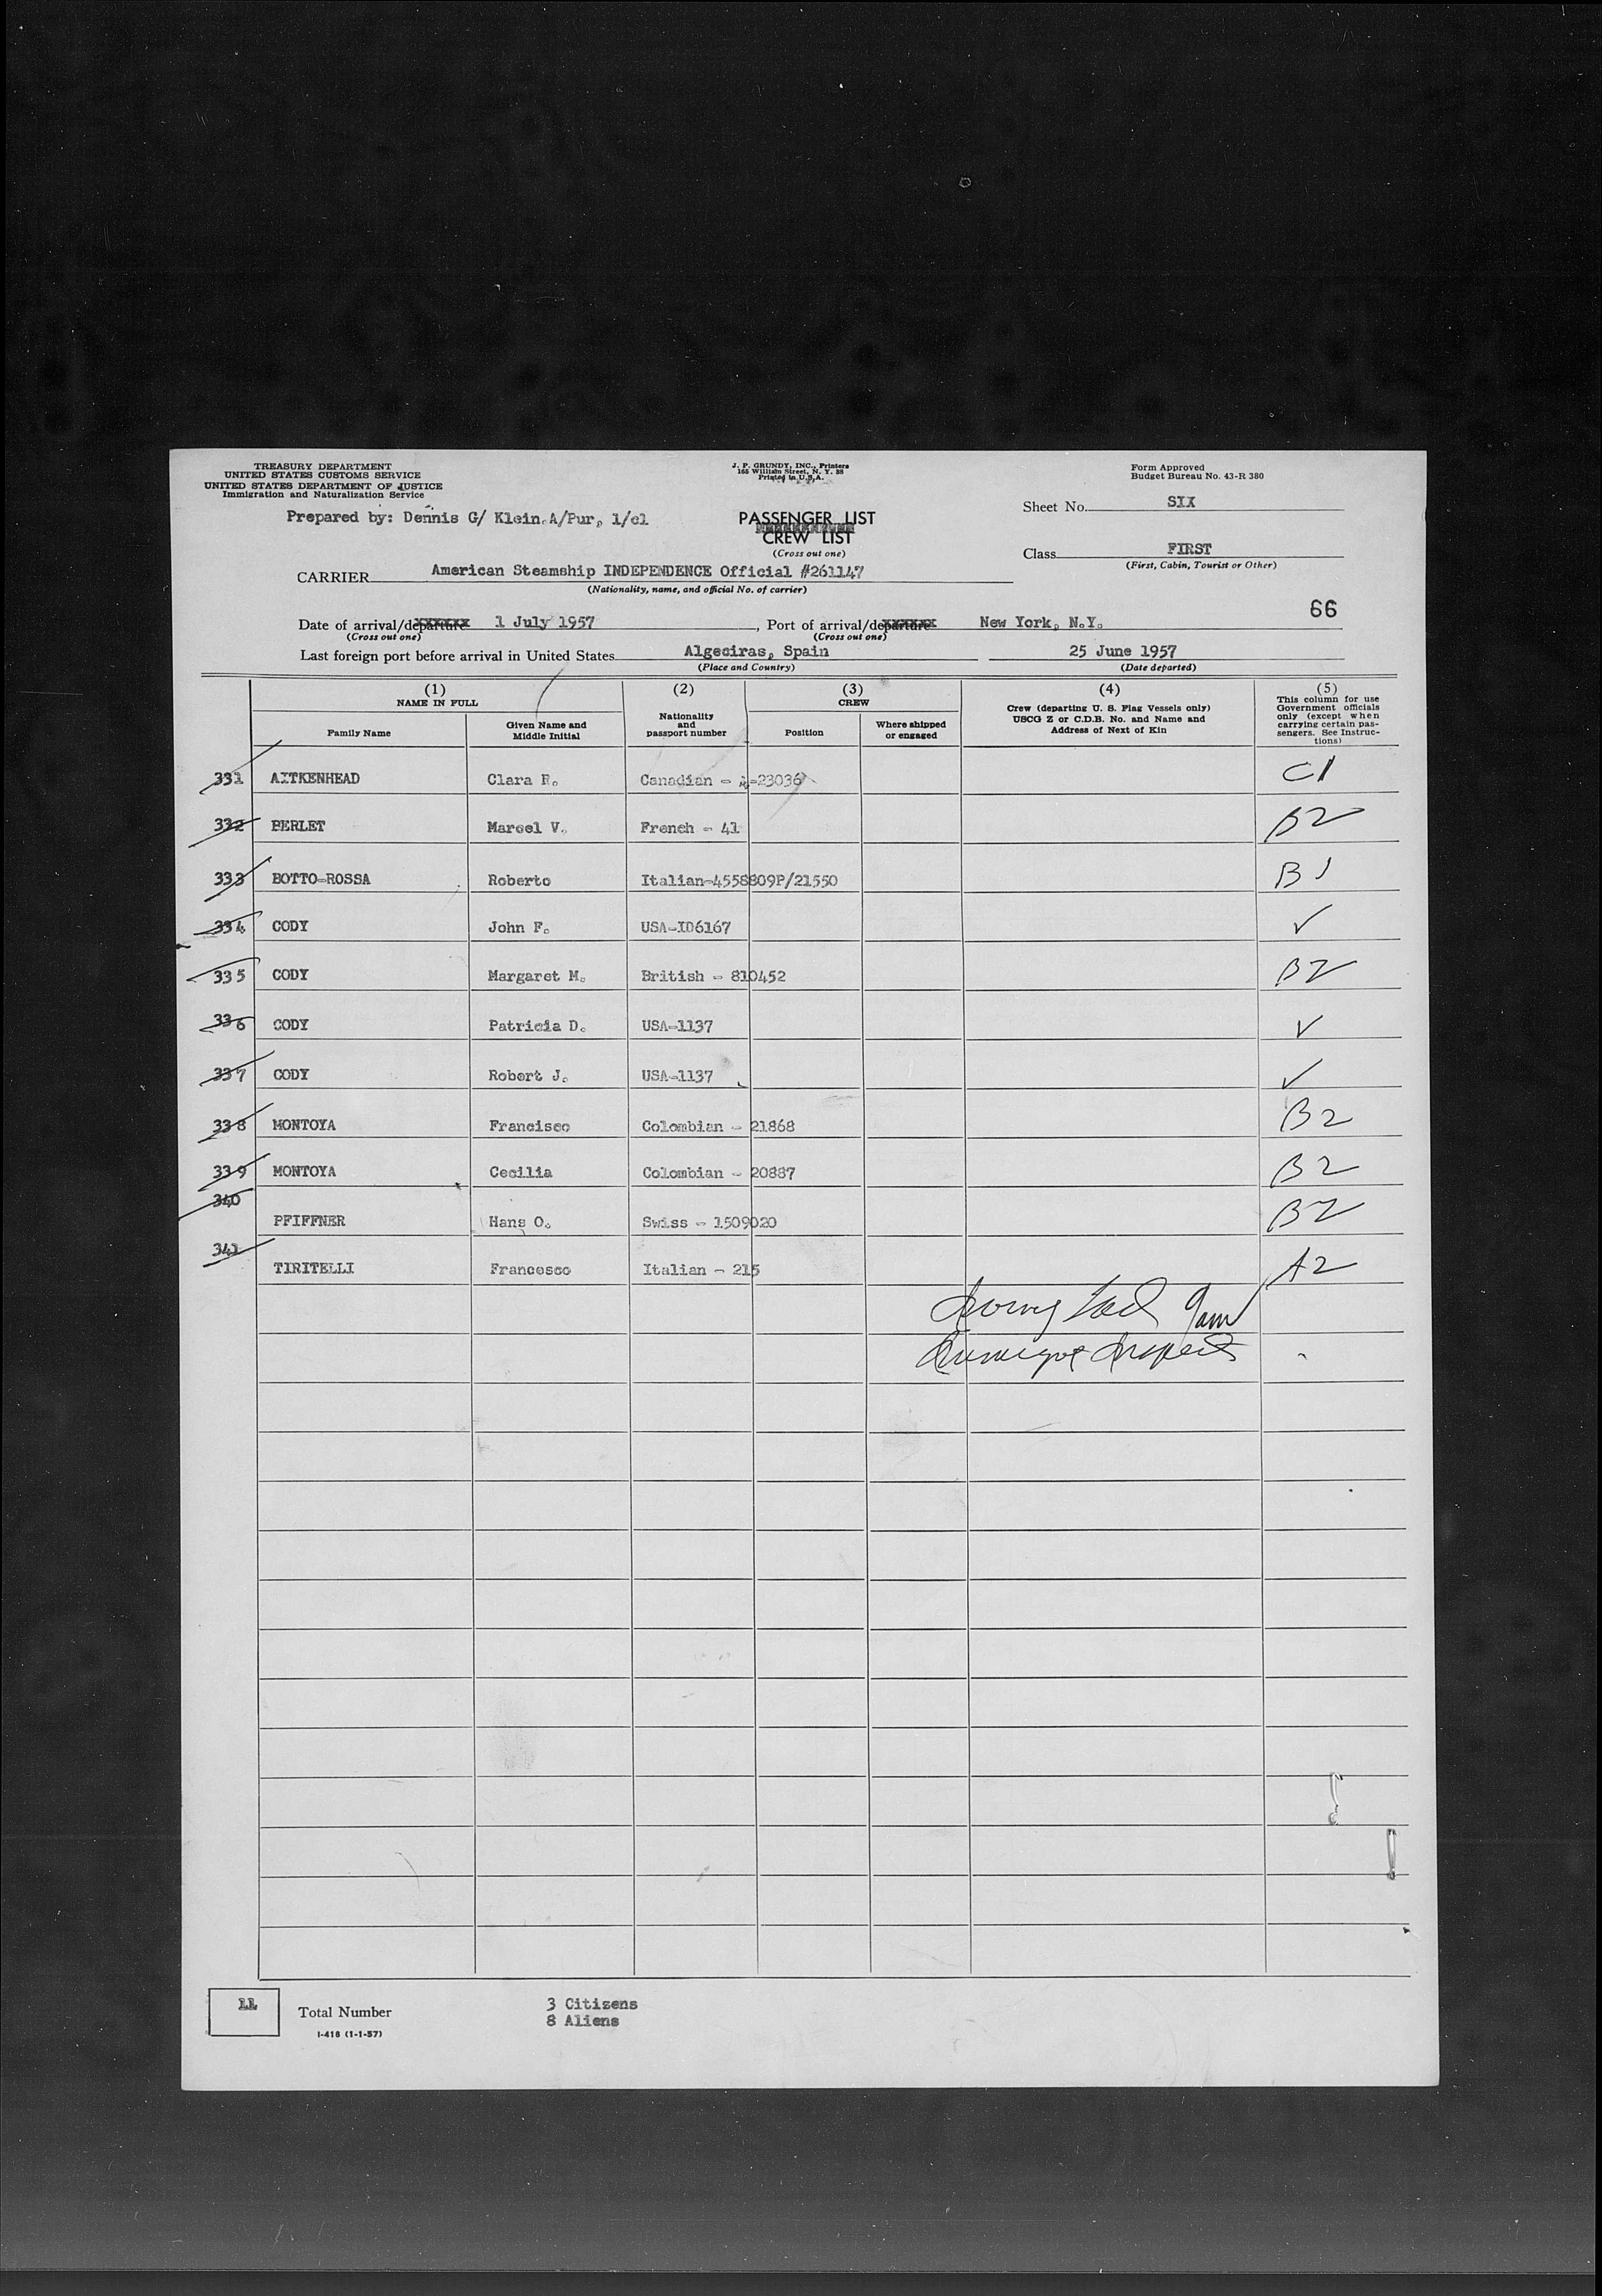 TREASURY DEPARTMENT
UNITED STATES CUSTOMS SERVICE
UNITED STATES DEPARTMENT OF JUSTICE
Immigration and Naturalization Service
J. P. GRUNDY, INC., Printers
165 William Street, N. Y. 38
Printed in U.S.A.
Form Approved
Budget Bureau No. 43-R 380
Prepared by: Dennis G/ Klein.A/Pur, 1/cl
PASSENGER LIST
CREW LIST
(Cross out one)
Sheet No. SIX
Class FIRST
(First, Cabin, Tourist or Other)
CARRIER American Steamship INDEPENDENCE Official #261147
(Nationality, name, and official No. of carrier)
66
Date of arrival/departure 1 July 1957, Port of arrival/departure New York, N.Y.
(Cross out one) (Cross out one)
Last foreign port before arrival in United States Algeciras, Spain 25 June 1957
(Place and Country) (Date departed)
(1) NAME IN FULL
Family Name
Given Name and Middle Initial
(2) Nationality and passport number
(3) CREW
Position
Where shipped or engaged
(4) Crew (departing U. S. Flag Vessels only) USCG Z or C.D.B. No. and Name and Address of Next of Kin
(5) This column for use Government officials only (except when carrying certain passengers. See Instructions)
331 AITKENHEAD Clara R. Canadian - -23036 C1
332 BERLET Marcel V. French - 41 B2
333 BOTTO-ROSSA Roberto Italian-4558809P/21550 B1
334 CODY John F. USA-ID6167 ✓
335 CODY Margaret M. British - 810452 B2
336 CODY Patricia D. USA-1137 ✓
337 CODY Robert J. USA-1137 ✓
338 MONTOYA Francisco Colombian - 21868 B2
339 MONTOYA Cecilia Colombian - 20887 B2
340 PFIFFNER Hans O. Swiss - 1509020 B2
341 TIRITELLI Francesco Italian - 215 A2
11 Total Number
I-418 (1-1-57)
3 Citizens
8 Aliens